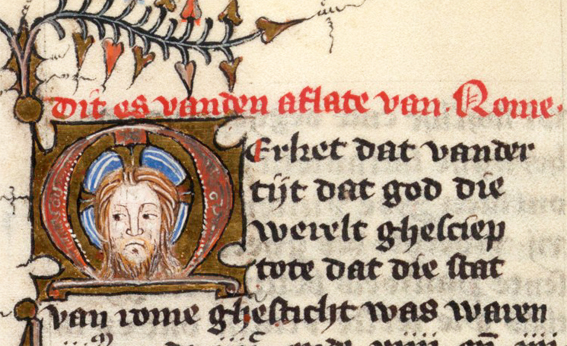 Dit es vanden aflate van Rome.
MErket dat vander
tijt dat god die
werelt ghesciep
tote dat die stat
van rome ghesticht was waren